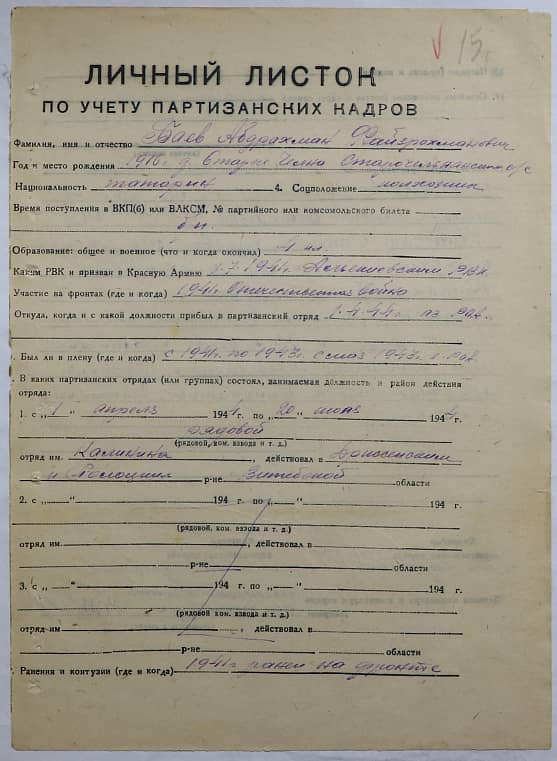 15
ЛИЧНЫЙ ЛИСТОК
ПО УЧЕТУ ПАРТИЗАНСКИХ КАДРОВ
Фамилия, имя и отчество Баев Абдрахман Файзрахманович
Год и место рождения 1910 д.
Национальность татарин 4. Соцположение колхозник
Время поступления в ВКП(б) или ВЛКСМ, № партийного или комсомольского билета
б/п.
Образование: общее и военное (что и когда окончил) 4 кл.
Каким РВК и призван в Красную Армию 7. 1941г. РВК
Участие на фронтах (где и когда) 1941 Отечественная война
Откуда, когда и с какой должности прибыл в партизанский отряд 1.4.44г. из
Был ли в плену (где и когда) с 1941 по 1943г. с 1943 г.
В каких партизанских отрядах (или группах) состоял, занимаемая должность и район действия
отряда:
1. с „1“ апреля 1944 г. по „20“ июня 1944 г.
рядовой
(рядовой, ком. взвода и т. д.)
отряд им. Калинина, действовал в
и Полоцком р-не Витебской области
2. с „ “ 194 г. по „ “ 194 г.
(рядовой, ком. взвода и т. д.)
отряд им. , действовал в
р-не области
3. с „ “ 194 г. по „ “ 194 г.
(рядовой, ком. взвода и т. д.)
отряд им , действовал в
р-не области
Ранения и контузии (где и когда) 1941г ранен на фронте